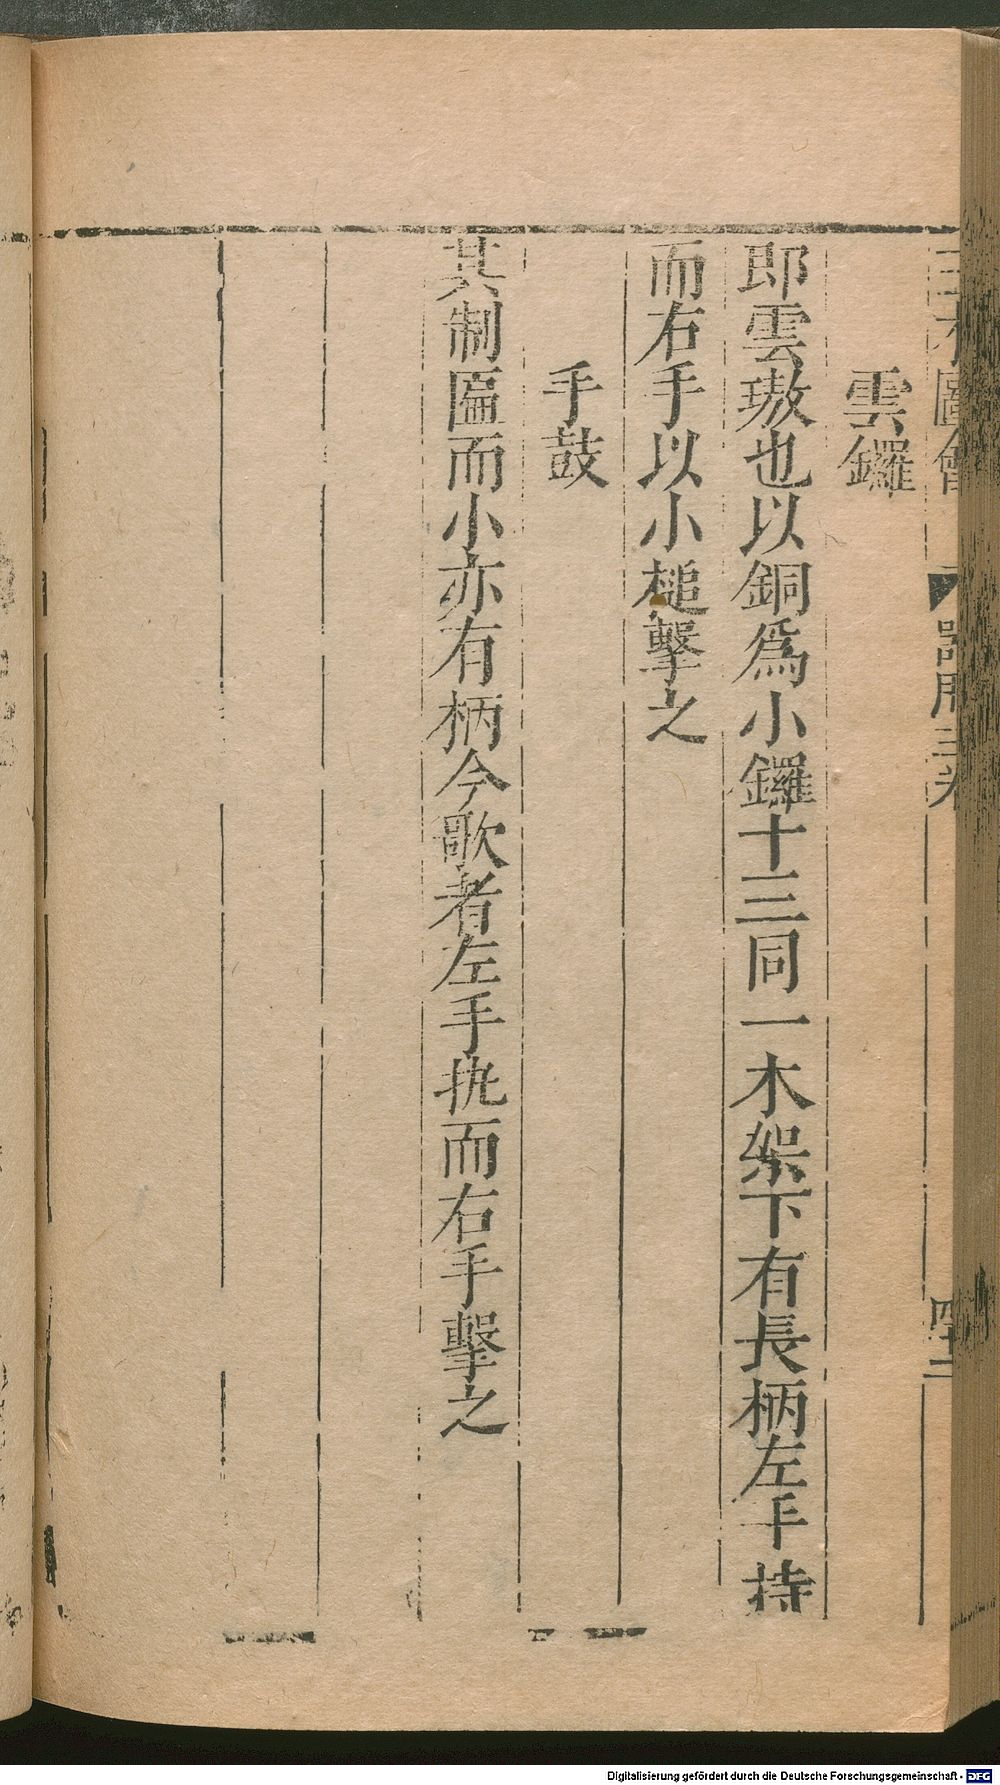 三才圖會 器用三卷 四十二
雲鑼
即雲璈也以銅爲小鑼十三同一木架下有長柄左手持
而右手以小槌擊之
手鼓
其制匾而小亦有柄今歌者左手執而右手擊之
Digitalisierung gefördert durch die Deutsche Forschungsgemeinschaft - DFG